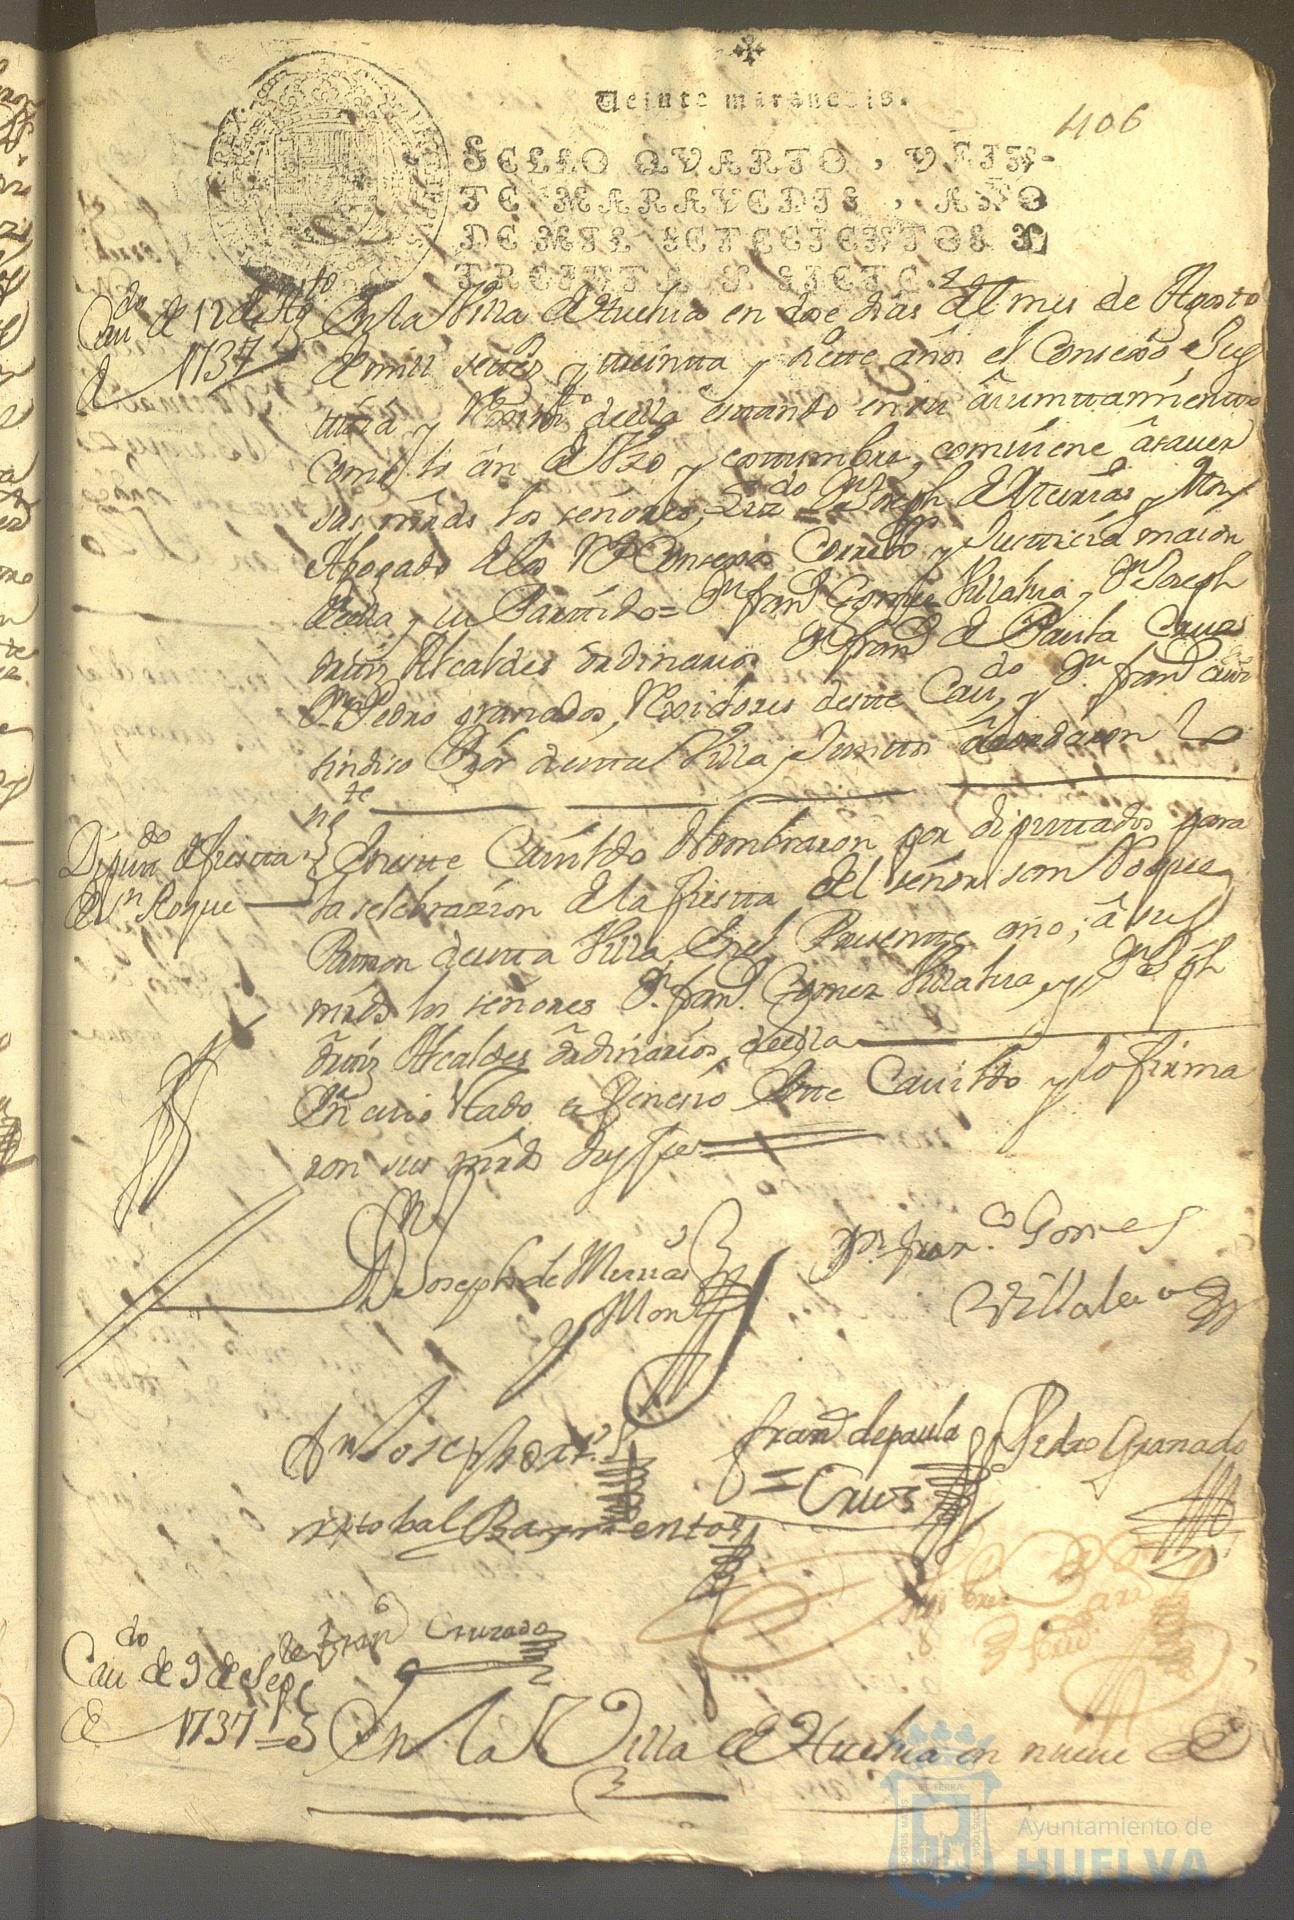 Veinte marauedis.
406
SELLO QVARTO, VEIN-
TE MARAVEDIS, AÑO
DE MIL SETECIENTOS Y
TREINTA Y SIETE.
Caudo de 12 de Agto
de 1737
En la Villa de Huelua en doze dias del mes de Agosto
de mill settez y treinta y siette años el Consexo Jus
ttizia y Reximto della estando en su aiunttamientto
como lo an de Vzo y costtumbre, combiene asauer
sus mrds los señores, Lizdo Dn Joseph de Mesias y Mon
Abogado de los Rs Consexos Correxor y Justticia maior
della y su Parttido = Dn Franco Gomez Villalua, Dn Joseph
ortiz Alcaldes ordinarios Dn Franco de Paula Cruz
Dn Pedro granados, Rexidores deste Caudo, y Dn Franco
sindico Pror desta Villa Junttos acordaron lo
sigte
Diputdos de fiestta
de Sn Roque
En este Cauildo Nombraron por diputtados para
la selebrazion de la fiestta del señor san Roque
Patron desta Villa en el Presentte año, a sus
mrds los señores Dn Franco Gomez Villalua, y Dn Jph
ortiz Alcaldes ordinarios della
En cuio estado se feneció este Cauildo y lo firma
ron sus mrds doy fee
Dn Joseph de Mesias
y Mon
Dn Franco Gomes
Villalua
Dn Joseph ortiz
Franco de paula
Cruz
Pedro Granado
xptobal Barrientos
Franco Cruzado
Caudo de 9 de Sepe
de 1737
En la Villa de Huelua en nueue de
Ayuntamiento de
HUELVA